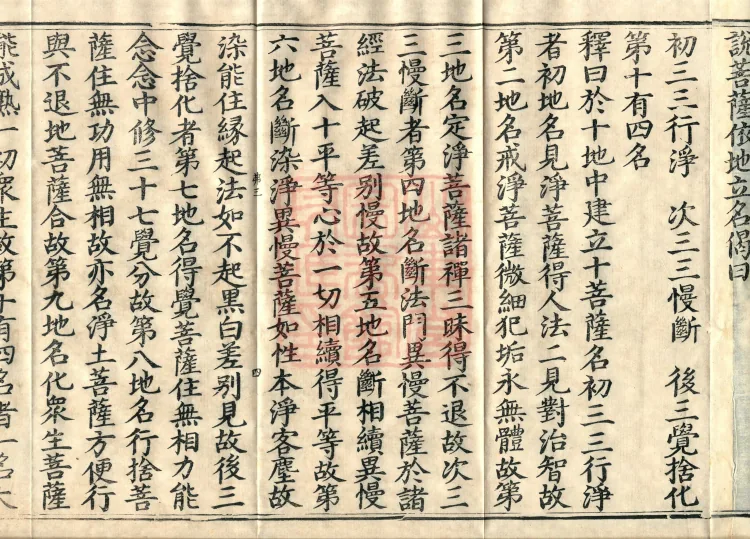 說菩薩依地立名偈曰
初三三行淨 次三三慢斷 後三覺捨化
第十有四名
釋曰於十地中建立十菩薩名初三三行淨
者初地名見淨菩薩得人法二見對治智故
第二地名戒淨菩薩微細犯垢永無體故第
三地名定淨菩薩諸禪三昧得不退故次三
三慢斷者第四地名斷法門異慢菩薩於諸
經法破起差別慢故第五地名斷相續異慢
菩薩入十平等心於一切相續得平等故第
六地名斷染淨異慢菩薩如性本淨客塵故
染能住緣起法如不起黑白差別見故後三
覺捨化者第七地名得覺菩薩住無相力能
念念中修三十七覺分故第八地名行捨菩
薩住無功用無相故亦名淨土菩薩方便行
與不退地菩薩合故第九地名化衆生菩薩
能成熟一切衆生故第十有四名者一名大
弟三
四